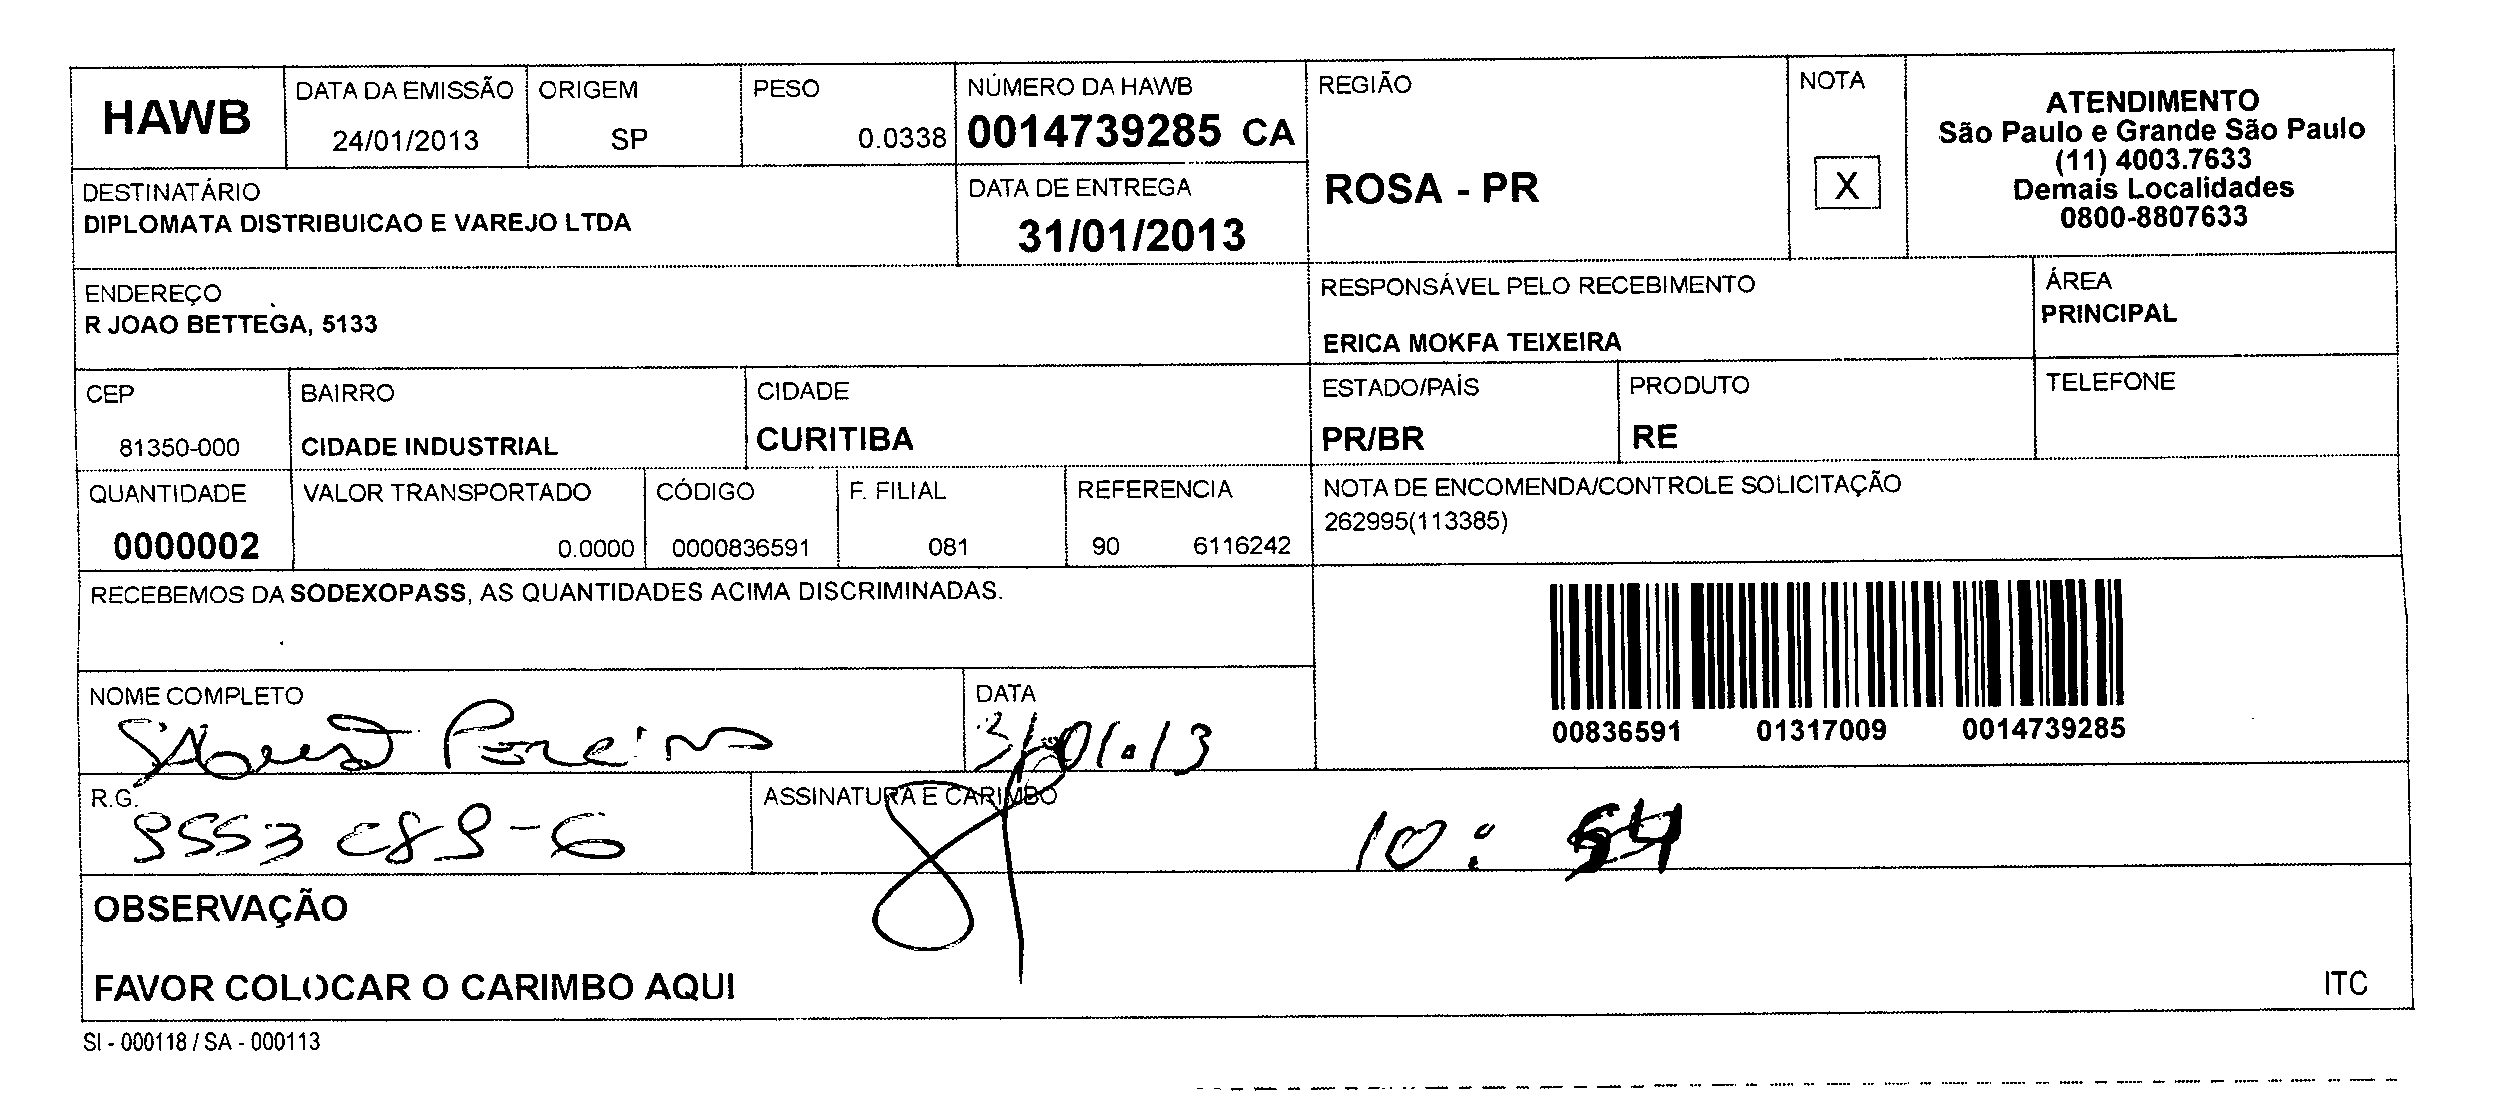 HAWB
DATA DA EMISSÃO
24/01/2013
ORIGEM
SP
PESO
0.0338
NÚMERO DA HAWB
0014739285 CA
REGIÃO
ROSA - PR
NOTA
X
ATENDIMENTO
São Paulo e Grande São Paulo
(11) 4003.7633
Demais Localidades
0800-8807633
DESTINATÁRIO
DIPLOMATA DISTRIBUICAO E VAREJO LTDA
DATA DE ENTREGA
31/01/2013
ENDEREÇO
R JOAO BETTEGA, 5133
RESPONSÁVEL PELO RECEBIMENTO
ERICA MOKFA TEIXEIRA
ÁREA
PRINCIPAL
CEP
81350-000
BAIRRO
CIDADE INDUSTRIAL
CIDADE
CURITIBA
ESTADO/PAÍS
PR/BR
PRODUTO
RE
TELEFONE
QUANTIDADE
0000002
VALOR TRANSPORTADO
0.0000
CÓDIGO
0000836591
F. FILIAL
081
REFERENCIA
90 6116242
NOTA DE ENCOMENDA/CONTROLE SOLICITAÇÃO
262995(113385)
RECEBEMOS DA SODEXOPASS, AS QUANTIDADES ACIMA DISCRIMINADAS.
00836591 01317009 0014739285
NOME COMPLETO
Pereira
DATA
31.01.13
R.G.
ASSINATURA E CARIMBO
10:
OBSERVAÇÃO
FAVOR COLOCAR O CARIMBO AQUI
ITC
SI - 000118 / SA - 000113